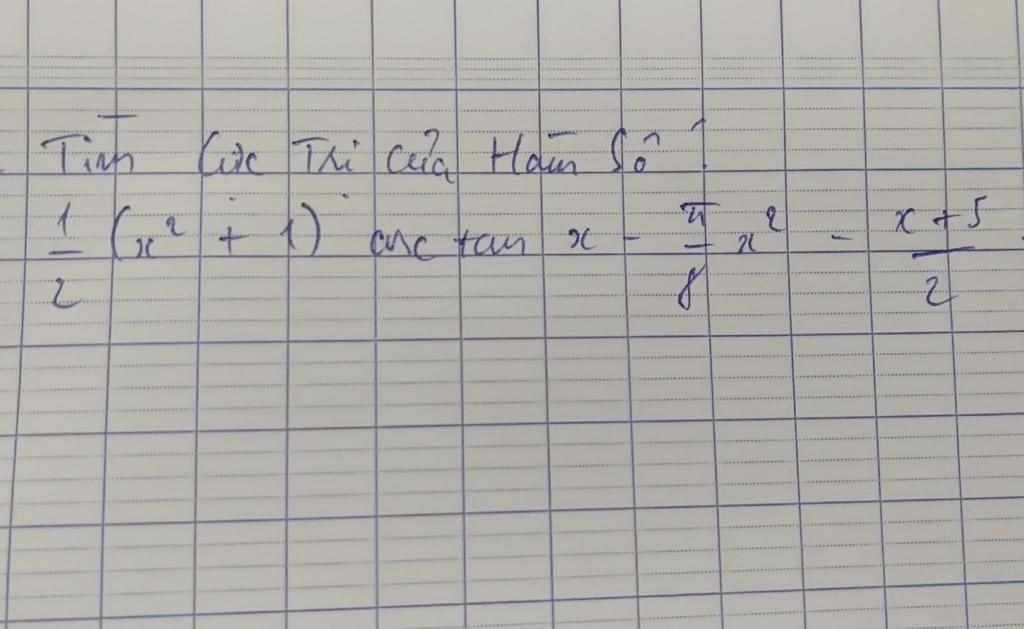 Tìm Cực Trị của Hàm Số
1/2 (x² + 1) arc tan x - π/8 x² - (x + 5)/2